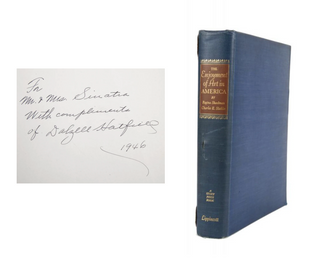 To
Mr & Mrs Sinatra
With compliments
of Dalzell Hatfield
1946
THE
Enjoyment
of Art in
AMERICA
BY
Regina Shoolman
Lippincott